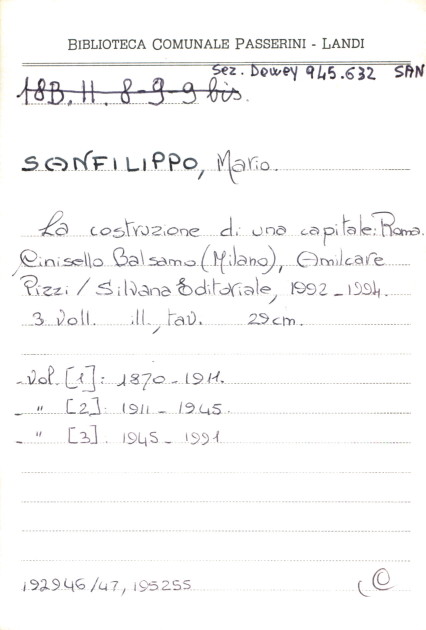 BIBLIOTECA COMUNALE PASSERINI - LANDI
Sez. Dewey 945.632 SAN
18B. II. 8-9-9 bis.
SANFILIPPO, Mario.
La costruzione di una capitale: Roma.
Cinisello Balsamo (Milano), Amilcare
Pizzi / Silvana Editoriale, 1992-1994.
3 voll. ill., tav. 29 cm.
- vol. [1]: 1870-1911.
- " [2]: 1911-1945.
- " [3]: 1945-1991
192946/47, 195255 C